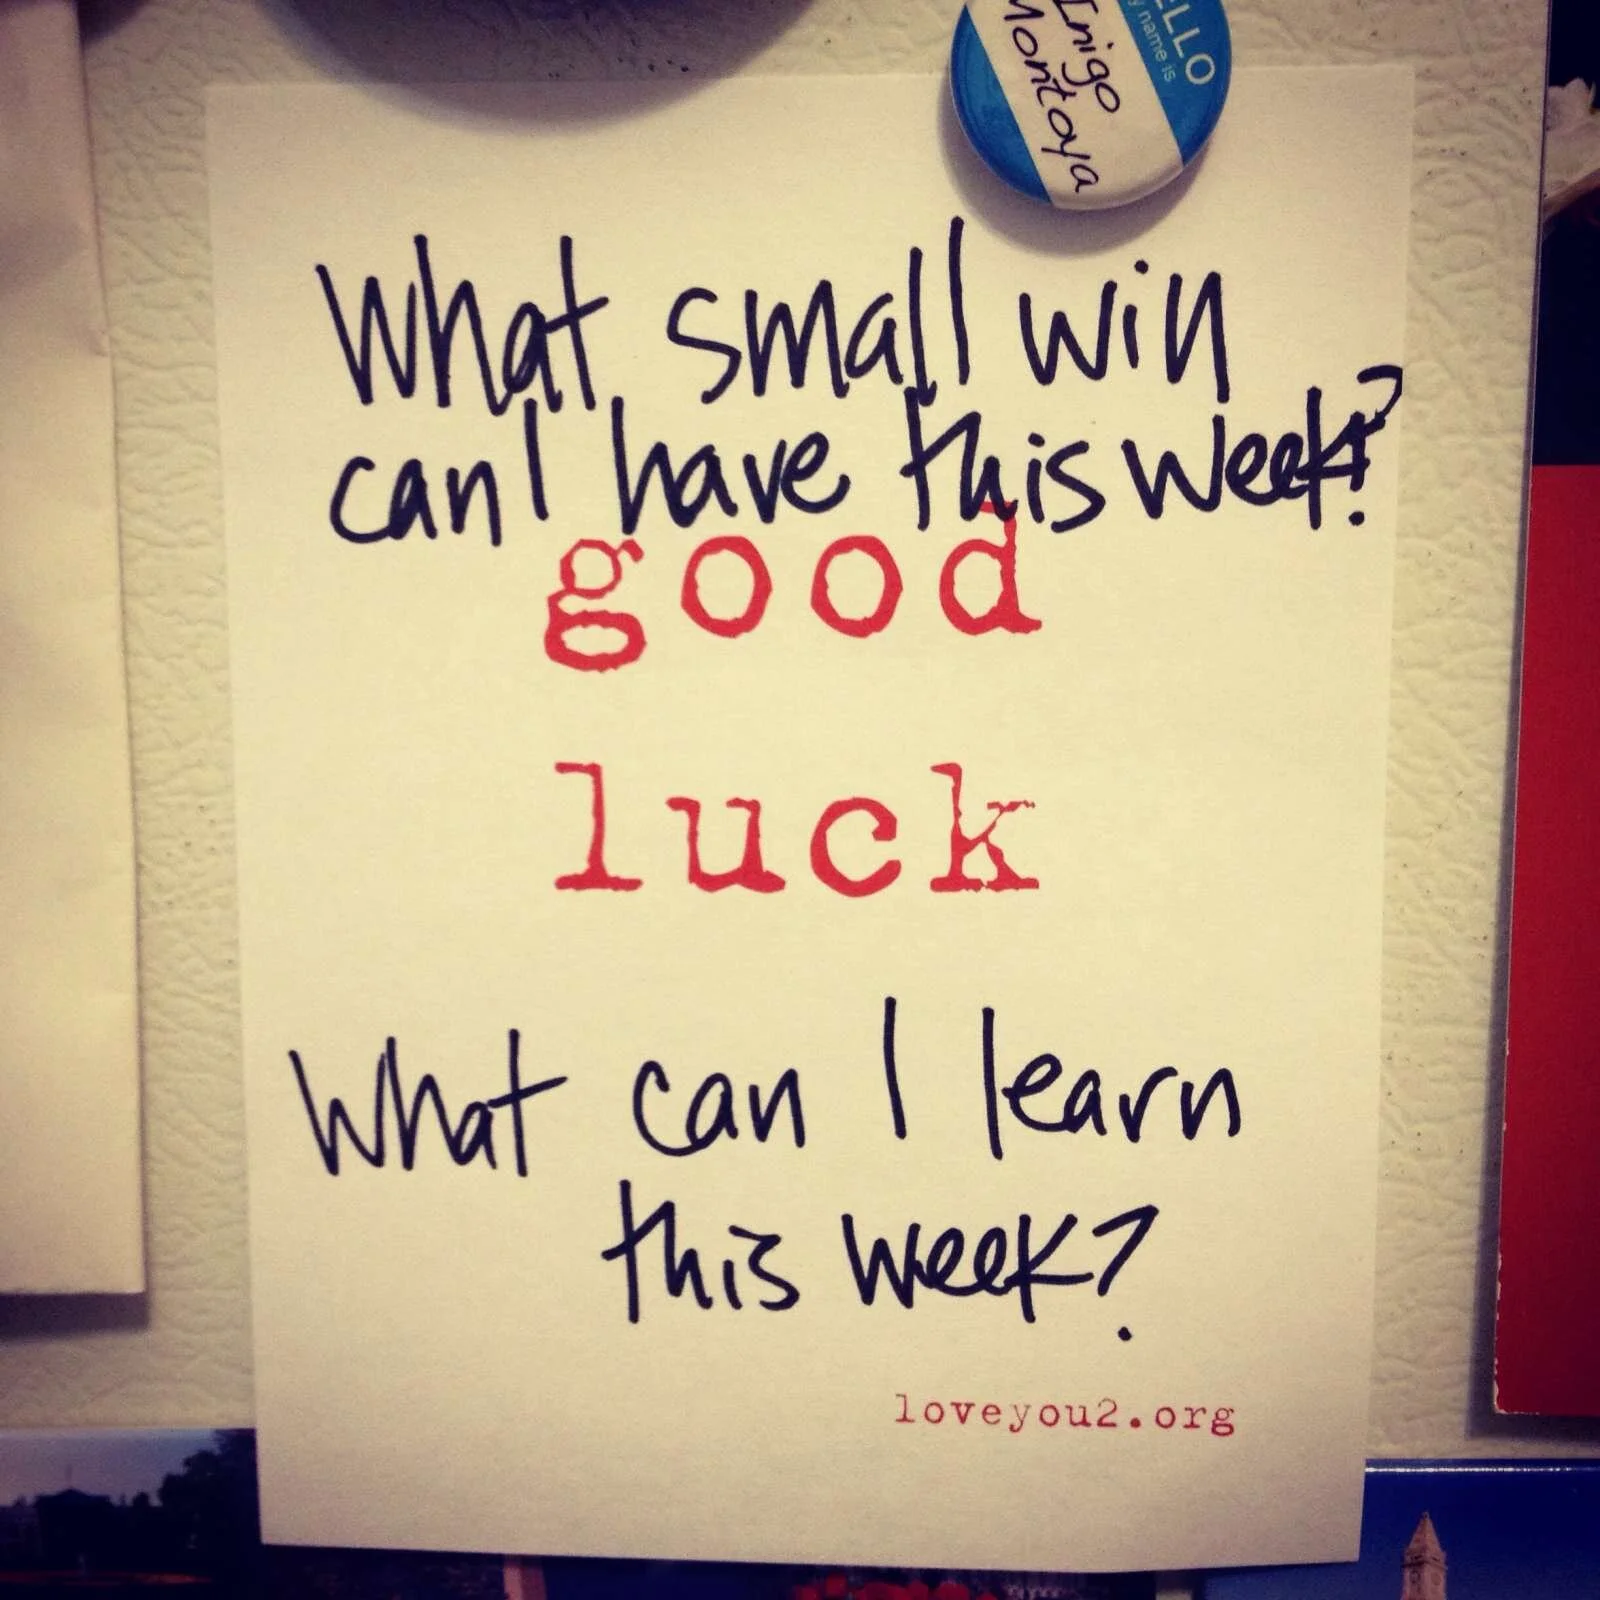 ELLO
y name is
Inigo
Montoya
What small win
can I have this week?
good
luck
What can I learn
this week?
loveyou2.org